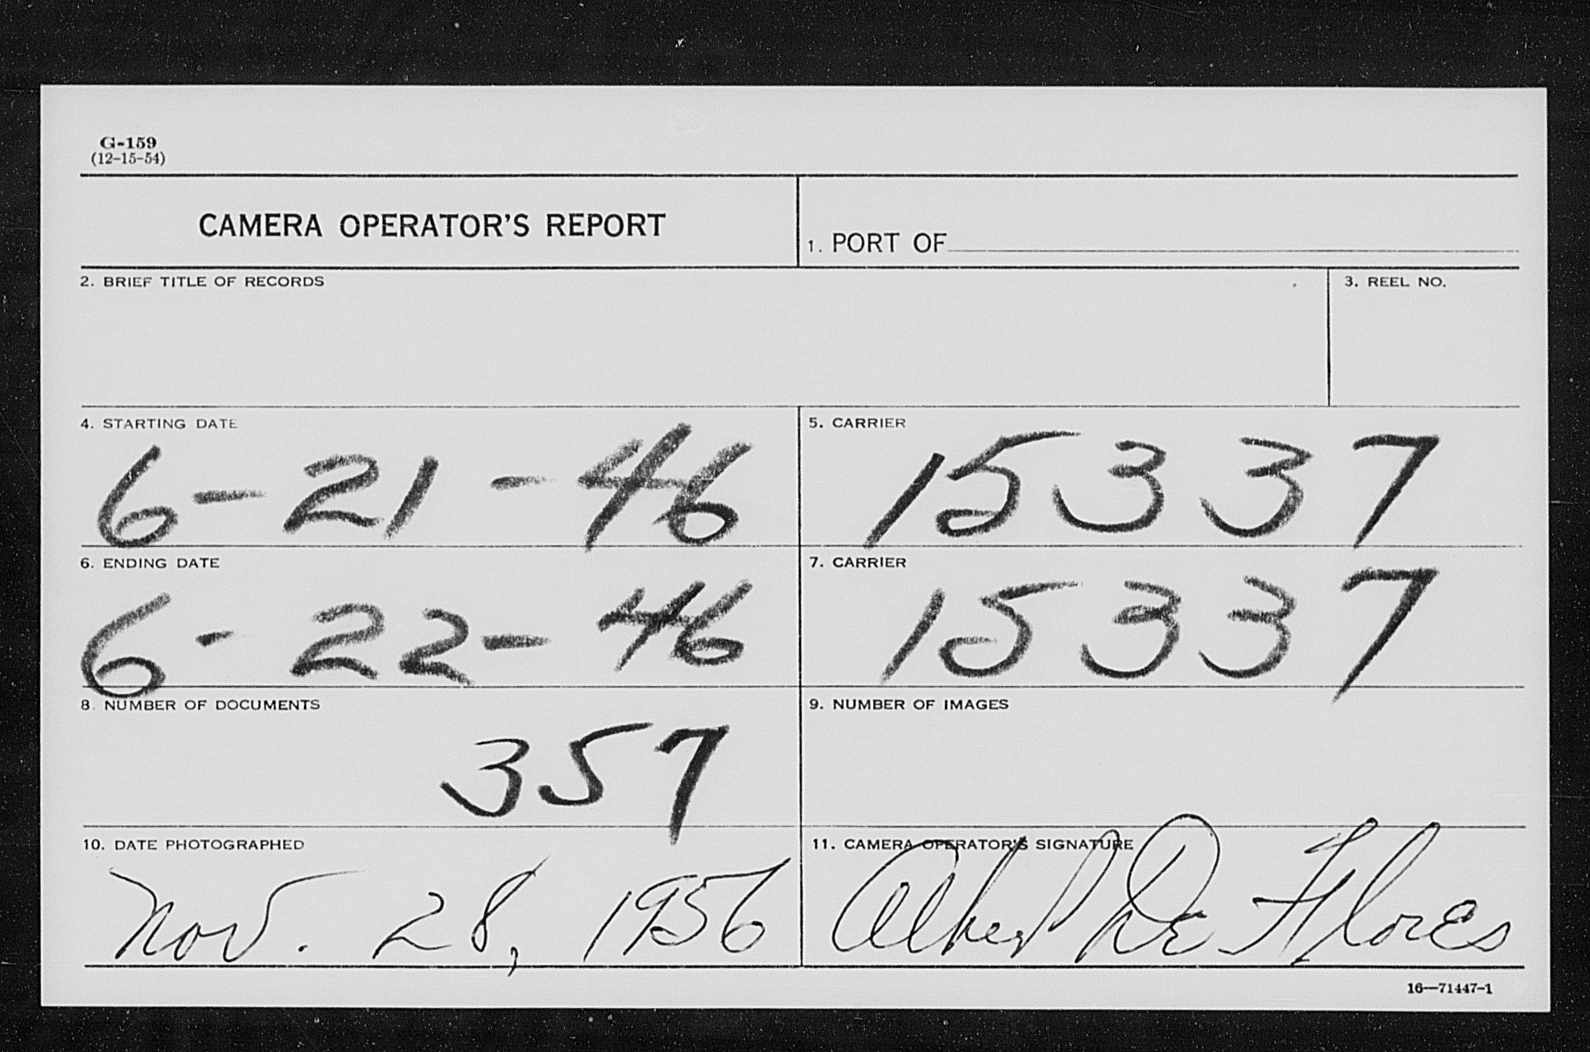 G-159
(12-15-54)
CAMERA OPERATOR'S REPORT
1. PORT OF
2. BRIEF TITLE OF RECORDS
3. REEL NO.
4. STARTING DATE
6-21-46
5. CARRIER
15337
6. ENDING DATE
6-22-46
7. CARRIER
15337
8. NUMBER OF DOCUMENTS
357
9. NUMBER OF IMAGES
10. DATE PHOTOGRAPHED
Nov. 28, 1956
11. CAMERA OPERATOR'S SIGNATURE
Albert De Flores
16—71447-1